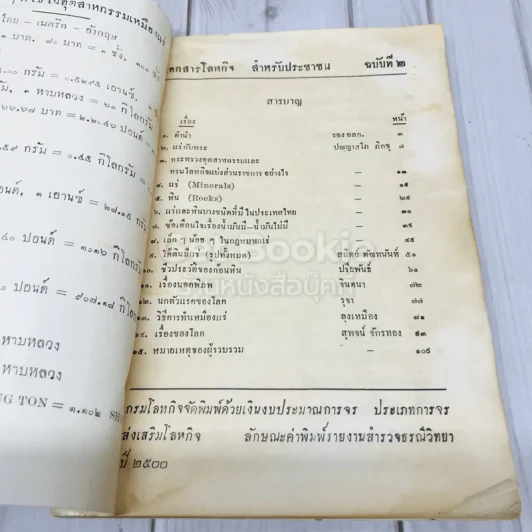 ไทย - เมตริก - อังกฤษ
๑ บาท, ๘๐ บาท = ๑ ชั่ง,
กรัม = ๐.๕๒๙๕ เอานซ์,
๑ หาบหลวง = ๖๐ กิโลกรัม
บาท = ๒.๒๐๔๖ ปอนด์
๕๙ กรัม = ๐.๔๕ กิโลกรัม
ปอนด์, ๑ เอานซ์ = ๒๘.๓๕
ปอนด์ = ๑,๐๑๖ กิโล
ปอนด์ = ๙๐๗.๑๘ กิโ
หาบหลวง
หาบหลวง
NG TON = ๑.๑๐๒
เอกสารโลหกิจ สำหรับประชาชน ฉบับที่ ๒
สารบาญ
เรื่อง หน้า
๑. คำนำ รอง อลก. ๓
๒. แร่กับพระ ปัญญาสโภ ภิกขุ ๗
๓. กระทรวงอุตสาหกรรมและ
กรมโลหกิจแบ่งส่วนราชการ อย่างไร — ๑๓
๔. แร่ (Minerals) — ๑๕
๕. หิน (Rocks) — ๒๕
๖. แร่และหินบางชนิดที่มีในประเทศไทย — ๓๑
๗. ข้อเตือนใจเรื่องน้ำมันมี—น้ำมันไม่มี —
๘. เล็ก ๆ น้อย ๆ ในกฎหมายแร่ — ๔๕
๙. ใต้ดินมีแร่ (รูปทั้งหมด) สถิตย์ ตัณฑนันท์ ๕๐
๑๐. ชีวประวัติของก้อนหิน ปริยพันธ์ ๖๑
๑๑. เรื่องนอกพิภพ จินตนา ๗๒
๑๒. นกตัวแรกของโลก รุจา ๗๗
๑๓. วิธีการทำเหมืองแร่ ลุงเหมือง ๘๑
๑๔. เรื่องของโลก สุพจน์ จักรทอง ๙๓
๑๕. หมายเหตุของผู้รวบรวม — ๑๐๕
กรมโลหกิจจัดพิมพ์ด้วยเงินงบประมาณการจร ประเภทการจร
ส่งเสริมโลหกิจ ลักษณะค่าพิมพ์รายงานสำรวจธรณีวิทยา
ปี ๒๕๐๐
Bookie
ร้านหนังสือบุ๊คกี้